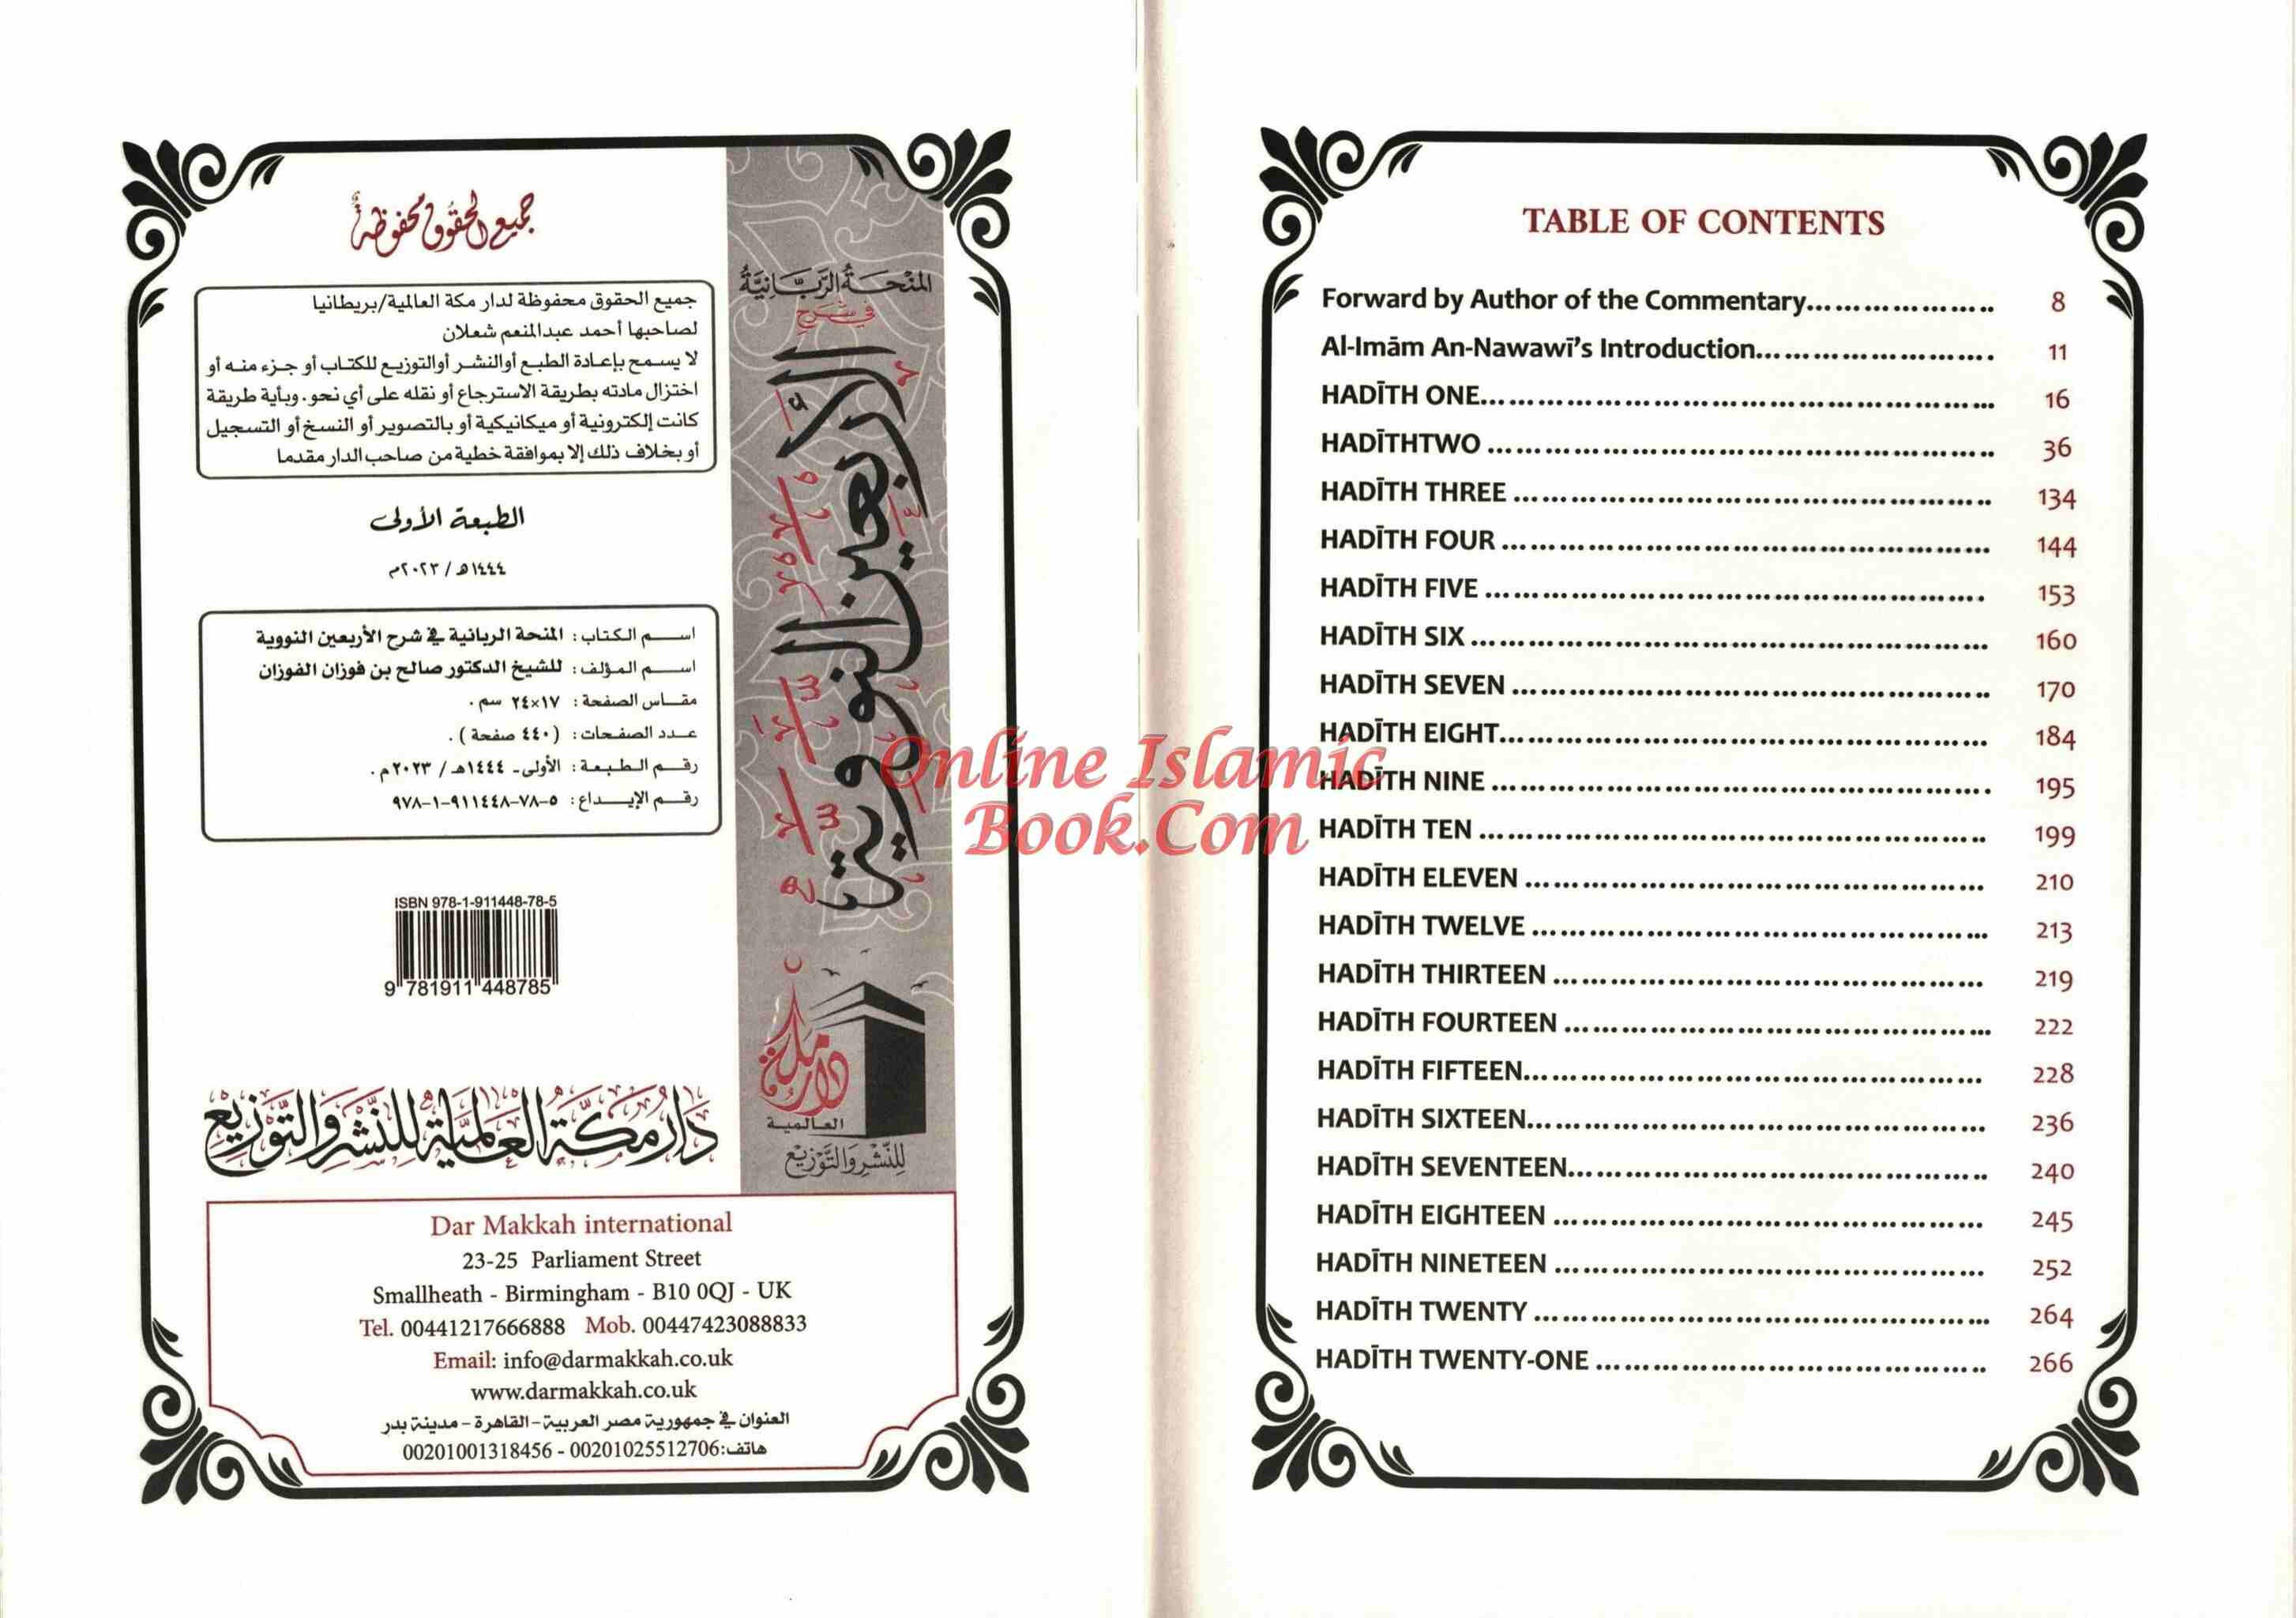 جميع الحقوق محفوظة
جميع الحقوق محفوظة لدار مكة العالمية/بريطانيا
لصاحبها أحمد عبدالمنعم شعلان
لا يسمح بإعادة الطبع أوالنشر أوالتوزيع للكتاب أو جزء منه أو
اختزال مادته بطريقة الاسترجاع أو نقله على أي نحو. وبأية طريقة
كانت إلكترونية أو ميكانيكية أو بالتصوير أو النسخ أو التسجيل
أو بخلاف ذلك إلا بموافقة خطية من صاحب الدار مقدما
الطبعة الأولى
١٤٤٤هـ / ٢٠٢٣م
اسم الكتاب : المنحة الربانية في شرح الأربعين النووية
اسم المؤلف : للشيخ الدكتور صالح بن فوزان الفوزان
مقاس الصفحة : ١٧×٢٤ سم .
عدد الصفحات : (٤٤٠ صفحة) .
رقم الطبعة : الأولى- ١٤٤٤هـ / ٢٠٢٣م .
رقم الإيداع : ٩٧٨-١-٩١١٤٤٨-٧٨-٥
ISBN 978-1-911448-78-5
9 781911 448785
دَارُ مَكَّةَ العَالَمِيَّة لِلنَّشْرِ وَالتَّوْزِيْعِ
المِنْحَةُ الرَّبَّانِيَّةُ
فِي شَرْحِ
الأربعين النووية
دار مكة
العالمية
لِلنَّشْرِ وَالتَّوْزِيْعِ
Dar Makkah international
23-25 Parliament Street
Smallheath - Birmingham - B10 0QJ - UK
Tel. 00441217666888 Mob. 00447423088833
Email: info@darmakkah.co.uk
www.darmakkah.co.uk
العنوان في جمهورية مصر العربية - القاهرة - مدينة بدر
هاتف: 00201025512706 - 00201001318456
Online Islamic
Book.Com
TABLE OF CONTENTS
Forward by Author of the Commentary........................ 8
Al-Imām An-Nawawī's Introduction........................ 11
HADĪTH ONE........................ 16
HADĪTHTWO ........................ 36
HADĪTH THREE ........................ 134
HADĪTH FOUR ........................ 144
HADĪTH FIVE ........................ 153
HADĪTH SIX ........................ 160
HADĪTH SEVEN ........................ 170
HADĪTH EIGHT........................ 184
HADĪTH NINE ........................ 195
HADĪTH TEN ........................ 199
HADĪTH ELEVEN ........................ 210
HADĪTH TWELVE ........................ 213
HADĪTH THIRTEEN ........................ 219
HADĪTH FOURTEEN ........................ 222
HADĪTH FIFTEEN........................ 228
HADĪTH SIXTEEN........................ 236
HADĪTH SEVENTEEN........................ 240
HADĪTH EIGHTEEN ........................ 245
HADĪTH NINETEEN ........................ 252
HADĪTH TWENTY ........................ 264
HADĪTH TWENTY-ONE ........................ 266